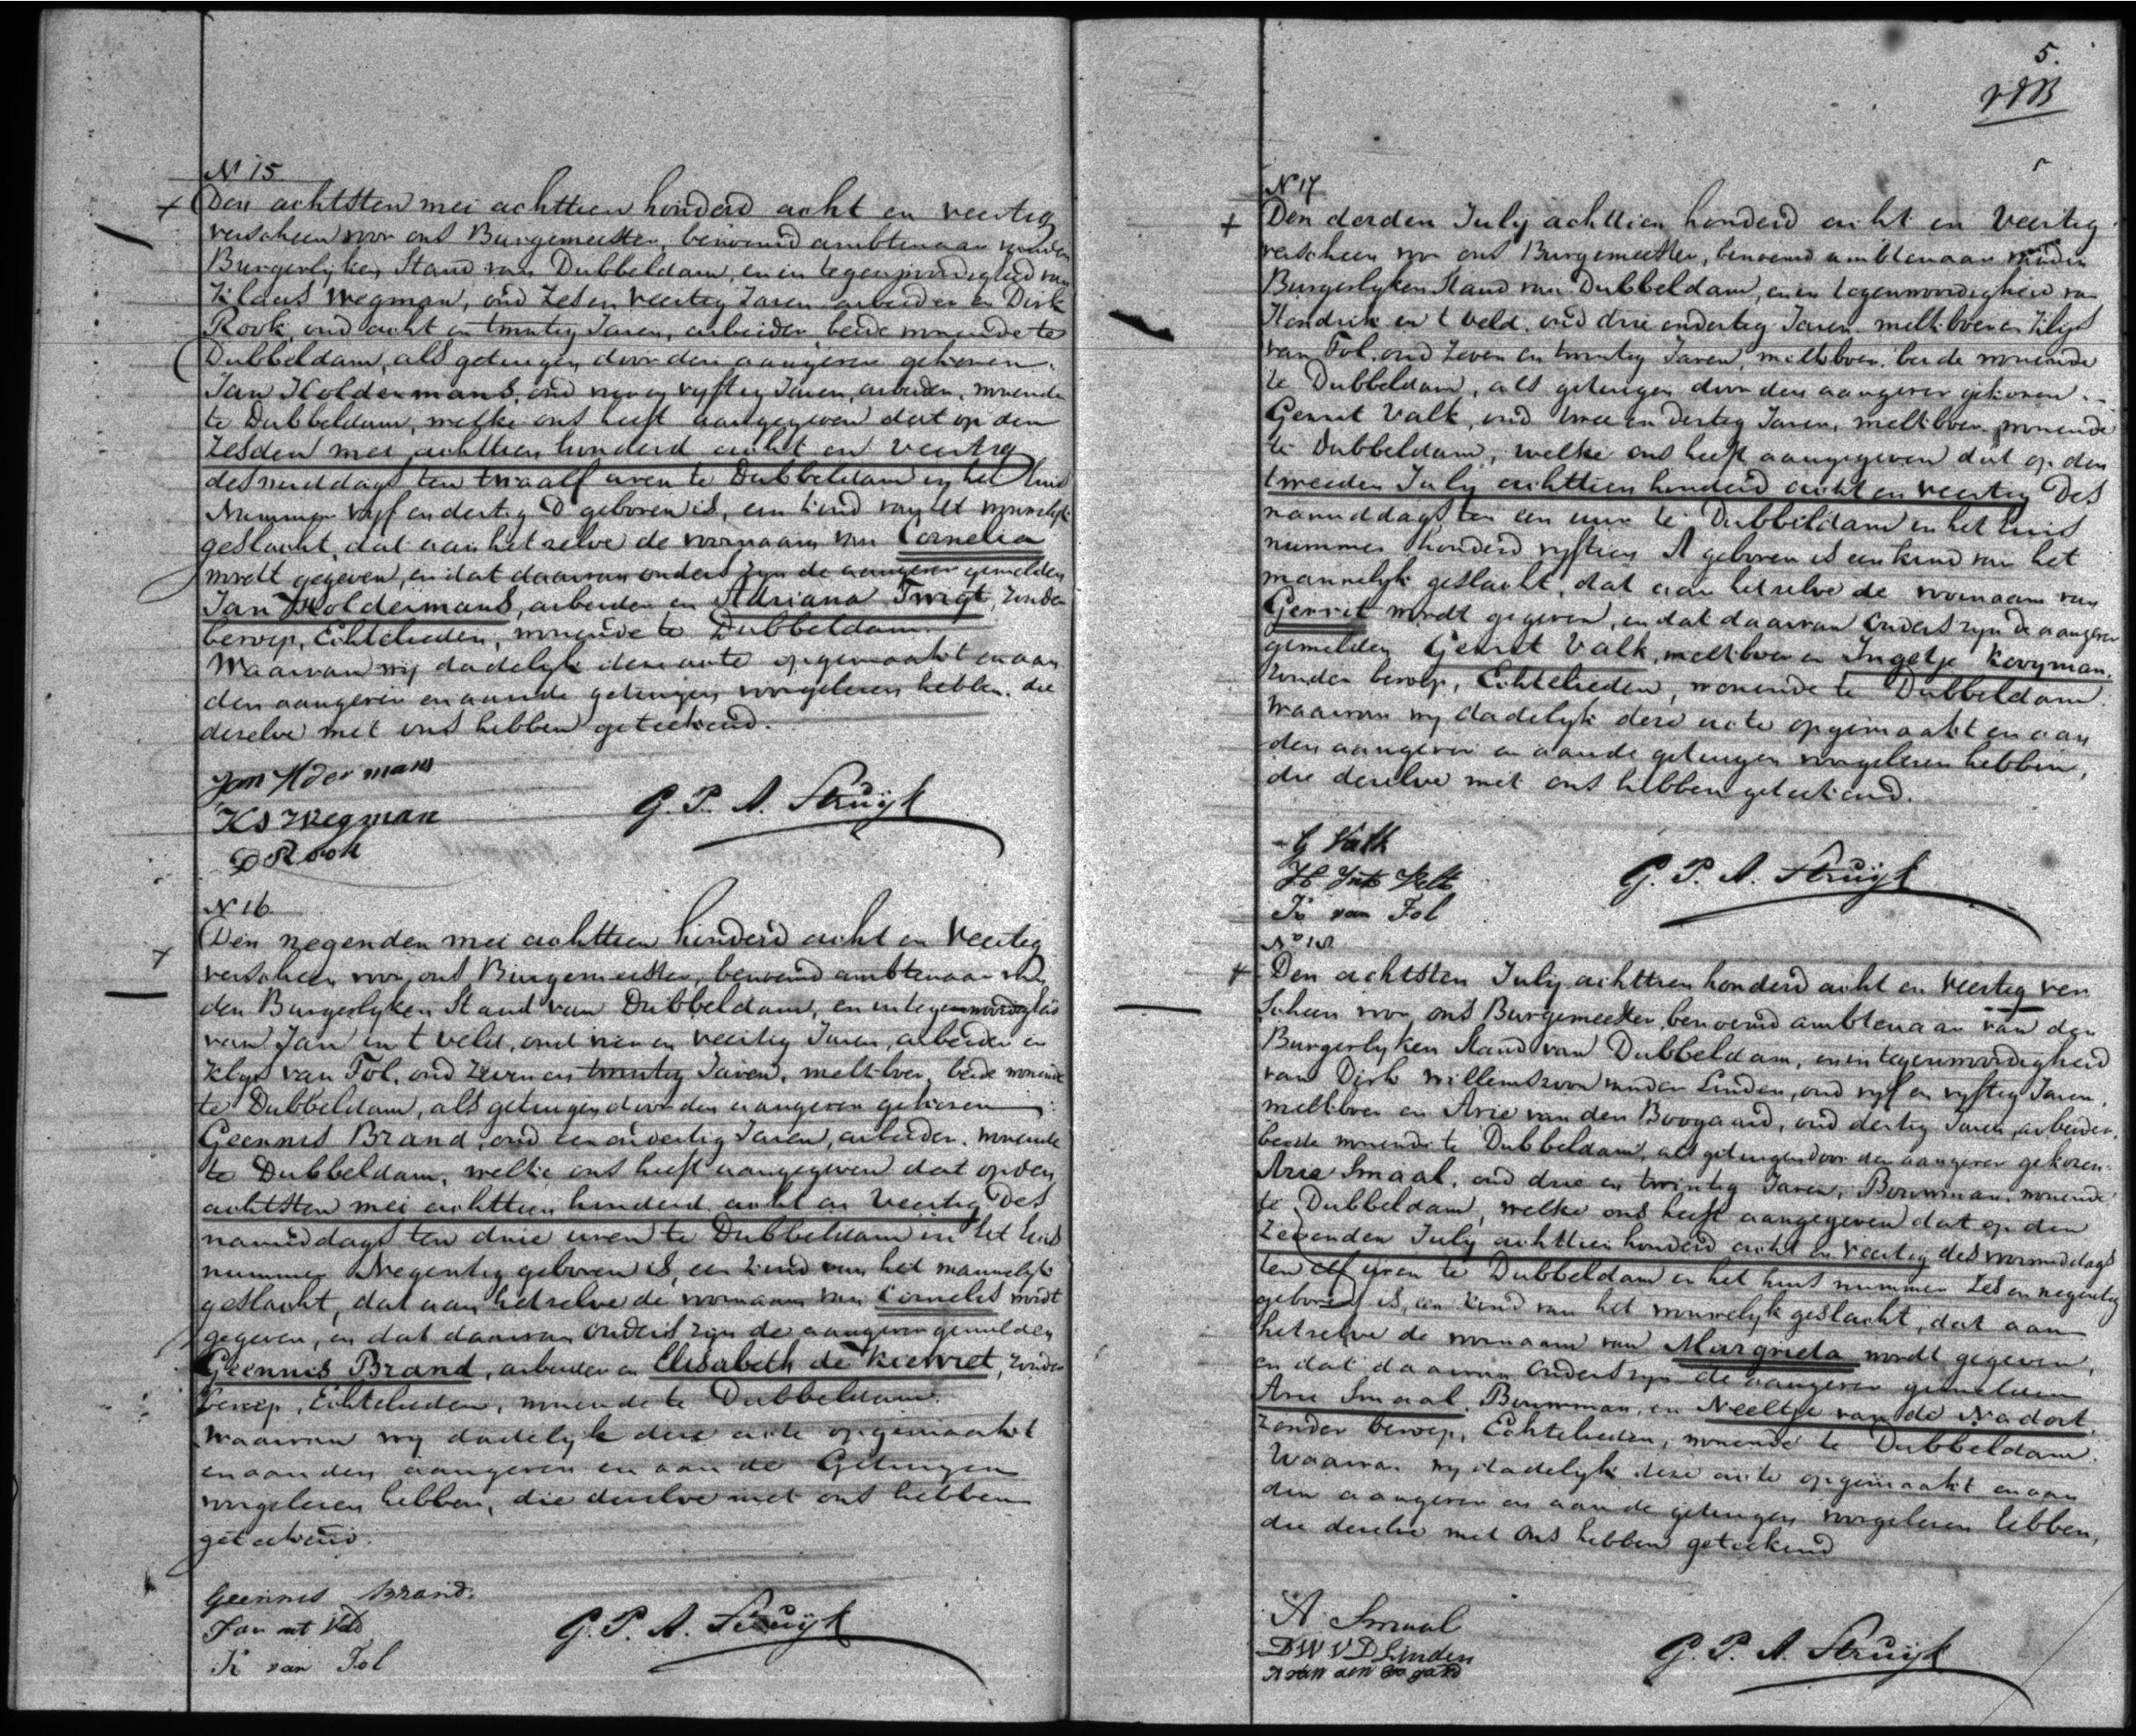 N 15
Den achtsten mei achttien honderd acht en veertig
verscheen voor ons Burgemeester, benoemd ambtenaar vanden
Burgerlyken Stand van Dubbeldam, en in tegenwoordigheid van
Klaas Wegman, oud zes en veertig Jaren arbeider en Dirk
Rook, oud acht en twintig Jaren, arbeider beide wonende te
Dubbeldam, als getuigen door den aangever gekozen.
Jan Holdermans, oud en vyftig Jaren, arbeider, wonende
te Dubbeldam, welke ons heeft aangegeven dat op den
zesden mei achttien honderd acht en veertig
des middags ten twaalf uren te Dubbeldam in het huis
Nummer vyf en dertig D geboren is, een kind van het vrouwelyk
geslacht, dat aan hetzelve de voornaam van Cornelia
wordt gegeven, en dat daarvan ouders zyn de aangever gemelden
Jan Holdermans, arbeider en Adriana Twigt, zonder
beroep, Echtelieden, wonende te Dubbeldam.
Waarvan wij dadelyk deze acte opgemaakt en aan
den aangever en aan de getuigen voorgelezen hebben, die
dezelve met ons hebben geteekend.
Jan Holdermans
Ks Wegman
D Rook
G. P. A. Struijk
N 16
Den negenden mei achttien honderd acht en veertig
verscheen voor ons Burgemeester, benoemd ambtenaar van
den Burgerlyken Stand van Dubbeldam, en in tegenwoordigheid
van Jan in t veld, oud en veertig Jaren, arbeider en
Klys van Tol, oud zeven en twintig Jaren, melkboer, beide wonende
te Dubbeldam, als getuigen door den aangever gekozen
Geennis Brand, oud een en dertig Jaren, arbeider, wonende
te Dubbeldam, welke ons heeft aangegeven dat op den
achtsten mei achttien honderd acht en veertig des
namiddags ten drie uren te Dubbeldam in het huis
nummer Negentig geboren is, een kind van het mannelyk
geslacht, dat aan hetzelve de voornaam van Cornelis wordt
gegeven, en dat daarvan ouders zyn de aangever gemelden
Geennis Brand, arbeider en Elisabeth de Kievriet, zonder
beroep, Echtelieden, wonende te Dubbeldam.
Waarvan wy dadelyk deze acte opgemaakt
en aan den aangever en aan de Getuigen
voorgelezen hebben, die dezelve met ons hebben
geteekend.
Geennis Brand.
Jan int Veld
K van Tol
G. P. A. Struijk
5.
N 17
Den derden July achttien honderd acht en veertig
verscheen voor ons Burgemeester, benoemd ambtenaar van den
Burgerlyken Stand van Dubbeldam, en in tegenwoordigheid van
Hendrik in t veld, oud drie en dertig Jaren, melkboer en Klys
van Tol, oud zeven en twintig Jaren, melkboer beide wonende
te Dubbeldam, als getuigen door den aangever gekozen.
Gerrit Valk, oud twee en dertig Jaren, melkboer wonende
te Dubbeldam, welke ons heeft aangegeven dat op den
tweeden July achttien honderd acht en veertig des
namiddags ten een uur te Dubbeldam in het huis
nummer honderd vyftien A geboren is een kind van het
mannelyk geslacht, dat aan hetzelve de voornaam van
Gerrit wordt gegeven, en dat daarvan Ouders zyn de aangever
gemelden Gerrit Valk, melkboer en Ingetje Kooyman,
zonder beroep, Echtelieden, wonende te Dubbeldam.
Waarvan wy dadelyk deze acte opgemaakt en aan
den aangever en aan de getuigen voorgelezen hebben,
die dezelve met ons hebben geteekend.
G Valk
H Int Velt
K van Tol
G. P. A. Struijk
No 18
Den achtsten July achttien honderd acht en veertig ver
scheen voor ons Burgemeester, benoemd ambtenaar van den
Burgerlyken Stand van Dubbeldam, en in tegenwoordigheid
van Dirk Willemszoon vander Linden, oud vyf en vyftig Jaren,
melkboer en Arie van den Boogaard, oud dertig Jaren, arbeider,
beide wonende te Dubbeldam, als getuigen door den aangever gekozen.
Arie Smaal, oud drie en twintig Jaren, Bouwman, wonende
te Dubbeldam, welke ons heeft aangegeven dat op den
zevenden July achttien honderd acht en veertig des voormiddags
ten elf uren te Dubbeldam in het huis nummer zes en negentig
geboren is, een kind van het vrouwelyk geslacht, dat aan
hetzelve de voornaam van Margrieta wordt gegeven,
en dat daarvan Ouders zyn de aangever gemelden
Arie Smaal, Bouwman, en Neeltje van de Nadort,
zonder beroep, Echtelieden, wonende te Dubbeldam.
Waarvan wy dadelyk deze acte opgemaakt en aan
den aangever en aan de getuigen voorgelezen hebben,
die dezelve met Ons hebben geteekend
A Smaal
DW V D Linden
A van den Bogard
G. P. A. Struijk